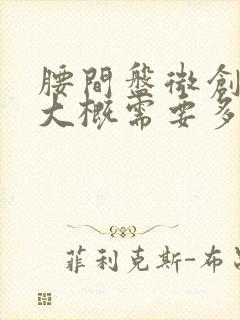 腰間盤微創
大概需要多
菲利克斯-布